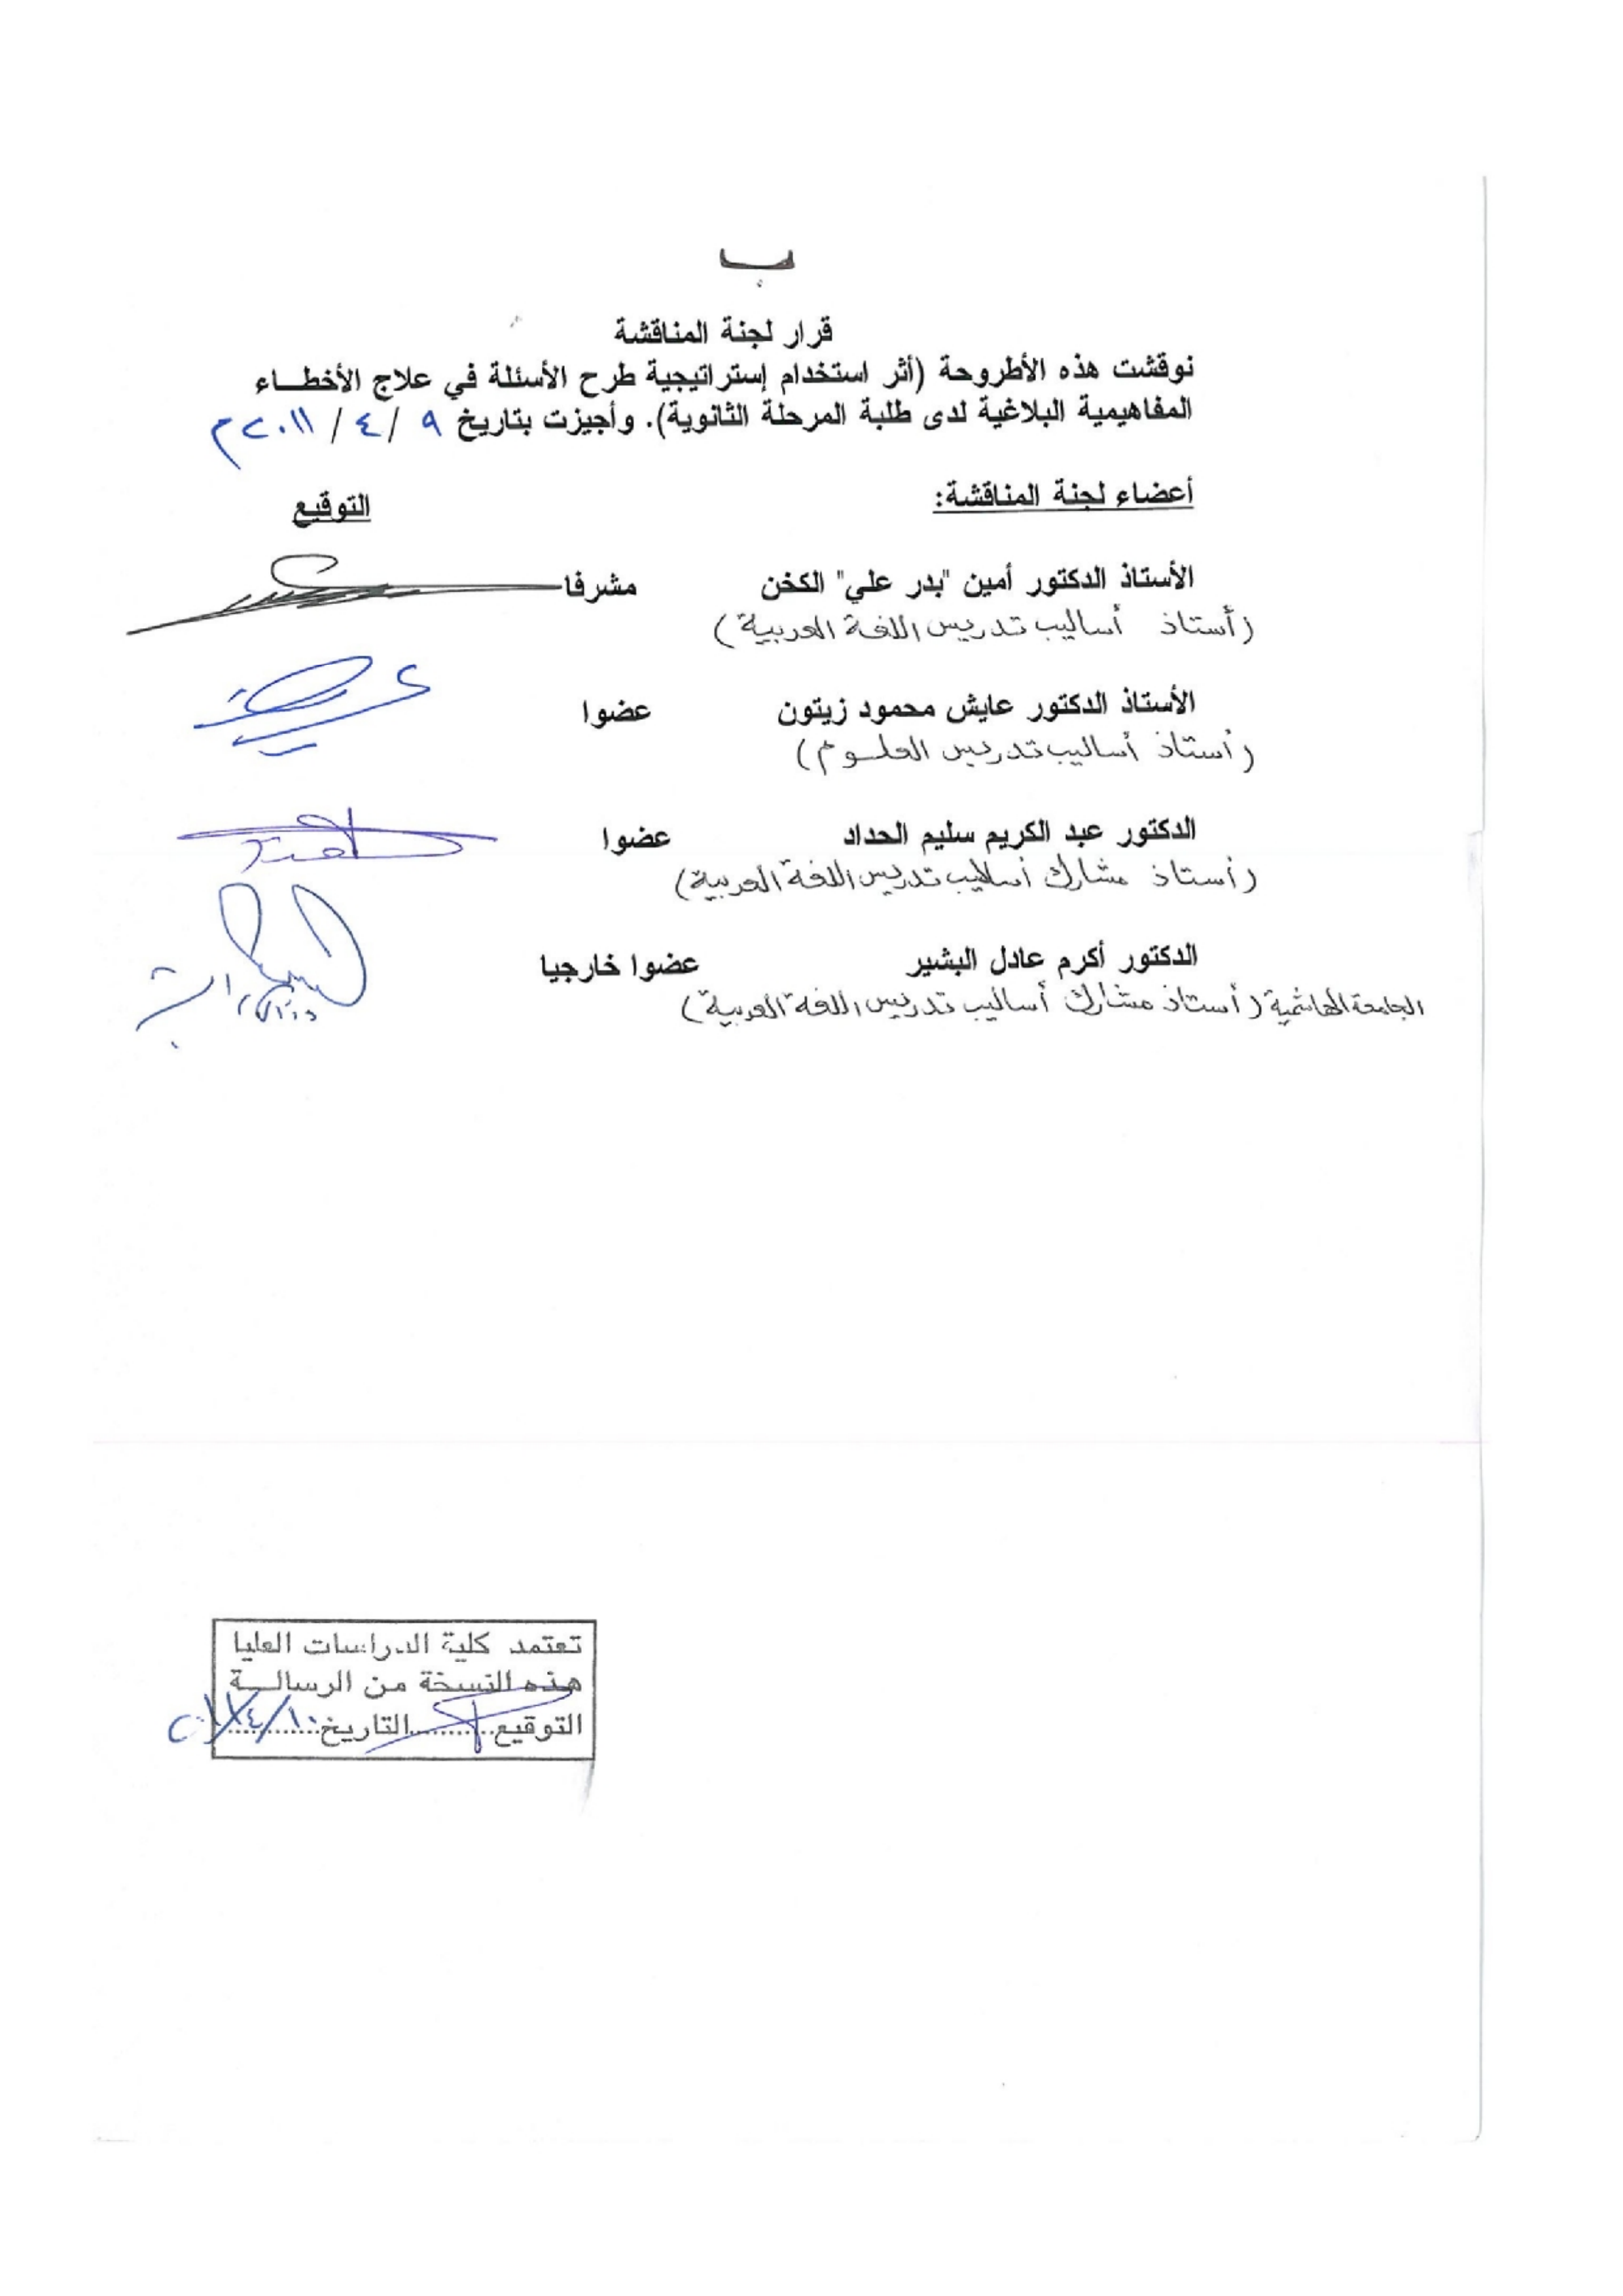 ب
قرار لجنة المناقشة
نوقشت هذه الأطروحة (أثر استخدام إستراتيجية طرح الأسئلة في علاج الأخطـــاء
المفاهيمية البلاغية لدى طلبة المرحلة الثانوية). وأجيزت بتاريخ ٩ / ٤ / ٢٠١١ م
أعضاء لجنة المناقشة: التوقيع
الأستاذ الدكتور أمين "بدر علي" الكخن مشرفا
(أستاذ أساليب تدريس اللغة العربية)
الأستاذ الدكتور عايش محمود زيتون عضوا
(أستاذ أساليب تدريس العلوم)
الدكتور عبد الكريم سليم الحداد عضوا
(أستاذ مشارك أساليب تدريس اللغة العربية)
الدكتور أكرم عادل البشير عضوا خارجيا
الجامعة الهاشمية (أستاذ مشارك أساليب تدريس اللغة العربية)
تعتمد كلية الدراسات العليا
هذه النسخة من الرسالـــة
التوقيع..........التاريخ ١٠/٤/